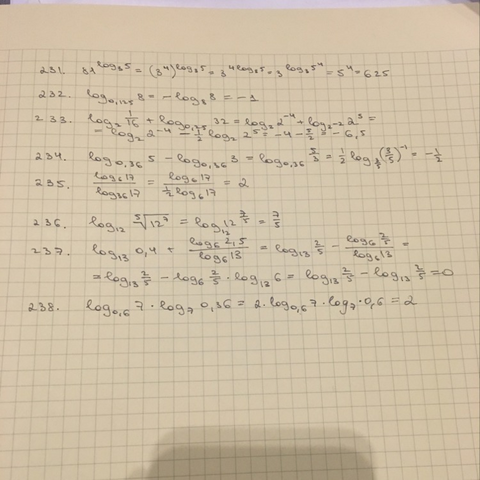 231. 81^log₃5 = (3⁴)^log₃5 = 3^4log₃5 = 3^log₃5⁴ = 5⁴ = 625
232. log₀,₁₂₅ 8 = -log₈ 8 = -1
233. log₂ 1/16 + log₀,₂₅ 32 = log₂ 2⁻⁴ + log₂₋₂ 2⁵ =
= log₂ 2⁻⁴ - 1/2 log₂ 2⁵ = -4 - 5/2 = -6,5
234. log₀,₃₆ 5 - log₀,₃₆ 3 = log₀,₃₆ 5/3 = 1/2 log_3/5 (3/5)⁻¹ = -1/2
235. log₆17/log₃₆17 = log₆17/(1/2 log₆17) = 2
236. log₁₂ ⁵√12⁷ = log₁₂ 12^7/5 = 7/5
237. log₁₃ 0,4 + log₆2,5/log₆13 = log₁₃ 2/5 - log₆ 2/5/log₆13 =
= log₁₃ 2/5 - log₆ 2/5 · log₁₃ 6 = log₁₃ 2/5 - log₁₃ 2/5 = 0
238. log₀,₆ 7 · log₇ 0,36 = 2 · log₀,₆ 7 · log₇ · 0,6 = 2